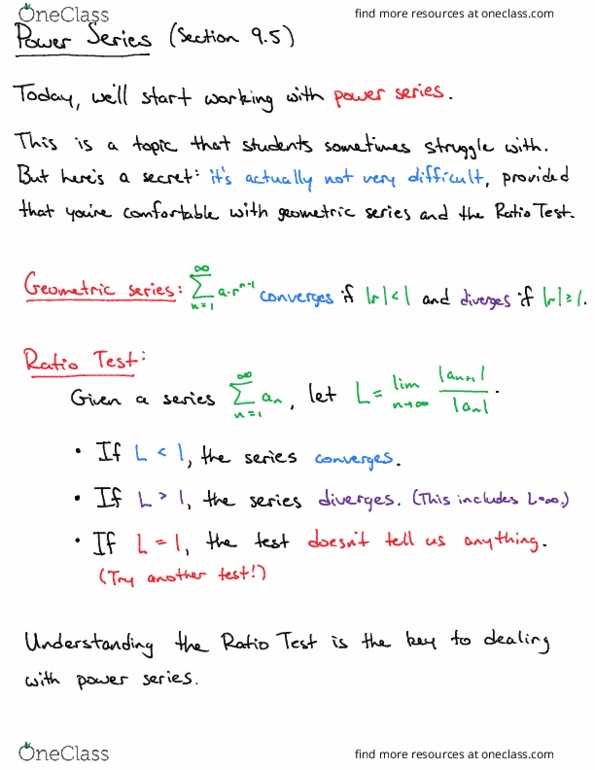 OneClass find more resources at oneclass.com
Power Series (Section 9.5)
Today, we'll start working with power series.
This is a topic that students sometimes struggle with.
But here's a secret: it's actually not very difficult, provided
that you're comfortable with geometric series and the Ratio Test.
Geometric series: ∑_{n=1}^{∞} a·r^{n-1} converges if |r|<1 and diverges if |r|≥1.
Ratio Test:
Given a series ∑_{n=1}^{∞} a_n, let L = lim_{n→∞} |a_{n+1}|/|a_n|.
• If L < 1, the series converges.
• If L > 1, the series diverges. (This includes L=∞.)
• If L = 1, the test doesn't tell us anything.
(Try another test!)
Understanding the Ratio Test is the key to dealing
with power series.
OneClass find more resources at oneclass.com